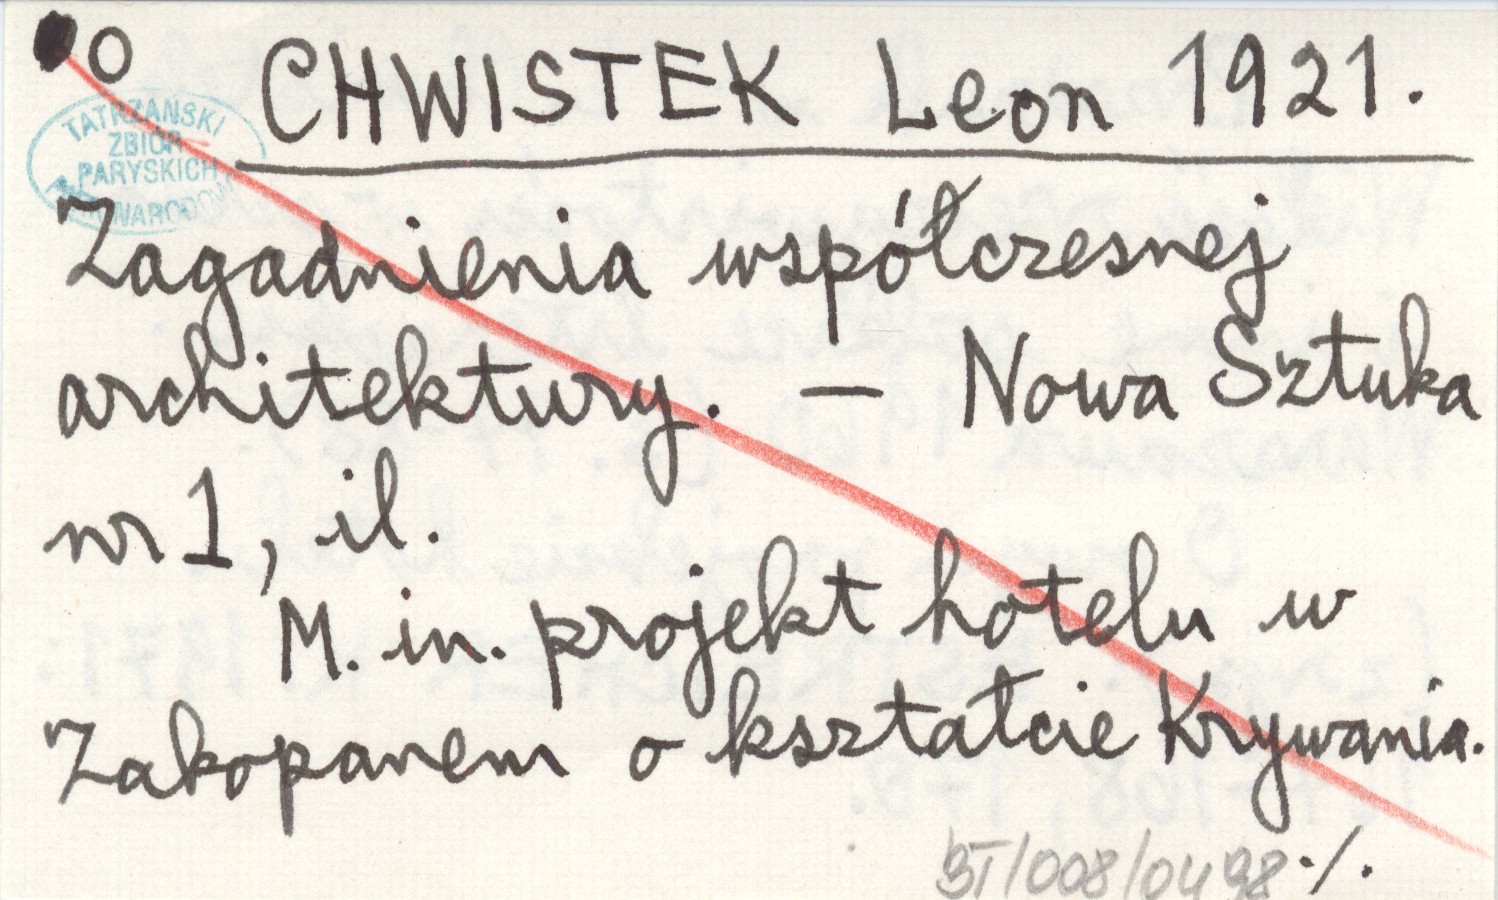 O CHWISTEK Leon 1921.
TATRZAŃSKI
ZBIÓR
PARYSKICH
Zagadnienia współczesnej
architektury. — Nowa Sztuka
nr 1, il.
M. in. projekt hotelu w
Zakopanem o kształcie Krywania.
BT/008/0498 ./.